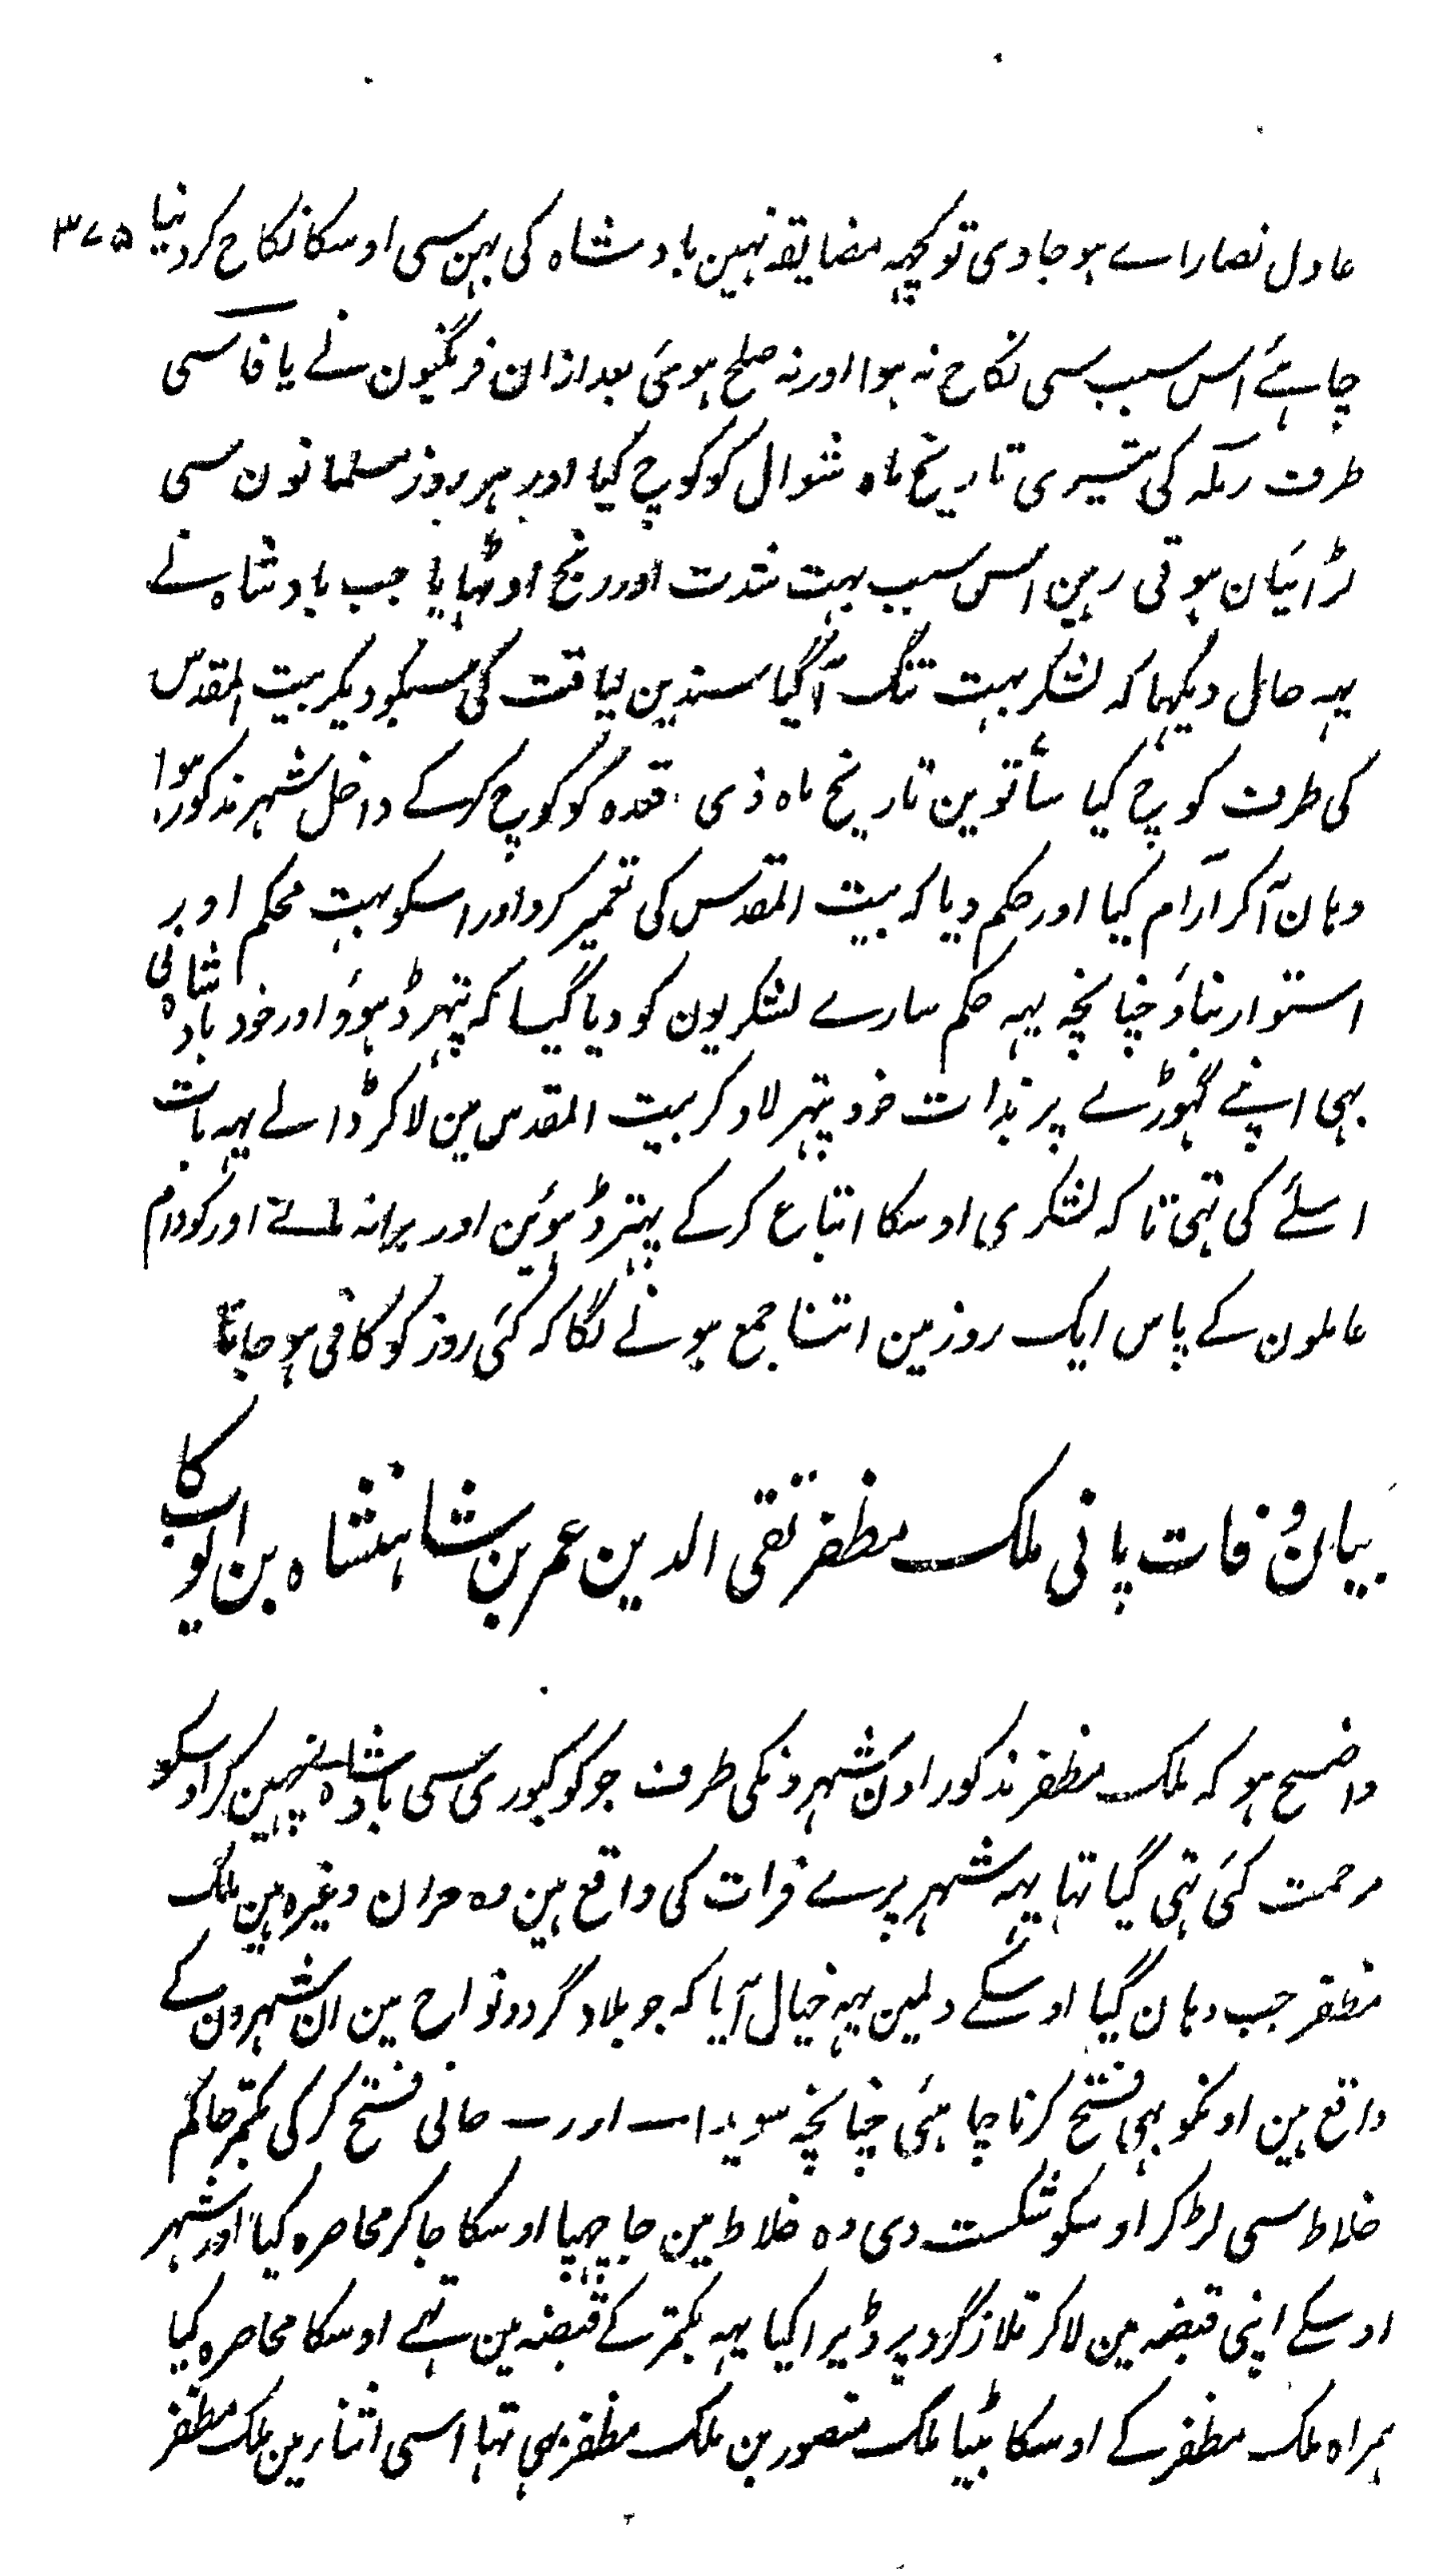 عادل نصاراے ہو جاوی تو کچہہ مضایقہ نہین بادشاہ کی بہن سی اوسکا نکاح کر دنیا ۳۷۵
چاہئے اس سبب سی نکاح نہ ہوا اور نہ صلح ہوئی بعد ازان فرنگیون نے یافا سی
طرف رملہ کی تیسری تاریخ ماہ شوال کو کوچ کیا اور ہر روز مسلمانون سی
لڑائیان ہوتی رہین اس سبب بہت شدت اور رنج اوٹہایا جب بادشاہ نے
یہہ حال دیکہا کہ لشکر بہت تنگ آگیا سندین لیاقت کی سبکو دیکر بیت المقدس
کی طرف کوچ کیا ساتوین تاریخ ماہ ذی قعدہ کو کوچ کرکے داخل شہر مذکور ہوا
وہان آکر آرام کیا اور حکم دیا کہ بیت المقدس کی تعمیر کرو اور اسکو بہت محکم اور
استوار بناؤ چنانچہ یہہ حکم سارے لشکریون کو دیا گیا کہ پتہر ڈہوؤ اور خود بادشاہ نی
بہی اپنے گہوڑے پر بذات خود پتہر لاد کر بیت المقدس مین لا کر ڈالے یہہ بات
اسلئے کی تہی تا کہ لشکری اوسکا اتباع کرکے پتہر ڈہوئین اور برا نہ مانے اور کودام
عاملون کے پاس ایک روز مین اتنا جمع ہونے لگا کہ کئی روز کو کافی ہو جاتا
بیان وفات پانی ملک مظفر تقی الدین عمر بن شاہنشاہ بن ایوب کا
واضح ہو کہ ملک مظفر مذکور اون شہرونکی طرف جو کوکبوری سی بادشاہ نے چہین کر اوسکو
مرحمت کئی تہی گیا تہا یہہ شہر پرے فرات کی واقع ہین وہ حران وغیرہ ہین ملک
مظفر جب وہان گیا اوسکے دلمین یہہ خیال آیا کہ جو بلاد گرد و نواح مین ان شہرون کے
واقع ہین اونکو بہی فتح کرنا چاہئی چنانچہ سویدا اور حانی فتح کر کی بکتمر حاکم
خلاط سی لڑ کر اوسکو شکست دی وہ خلاط مین جا چہپا اوسکا جا کر محاصرہ کیا اور شہر
اوسکے اپنی قبضہ مین لا کر تلازگرد پر ڈیرا کیا یہہ بکتمر کے قبضہ مین تہے اوسکا محاصرہ کیا
ہمراہ ملک مظفر کے اوسکا بیٹا ملک منصور بن ملک مظفر بہی تہا اسی اثنار مین ملک مظفر